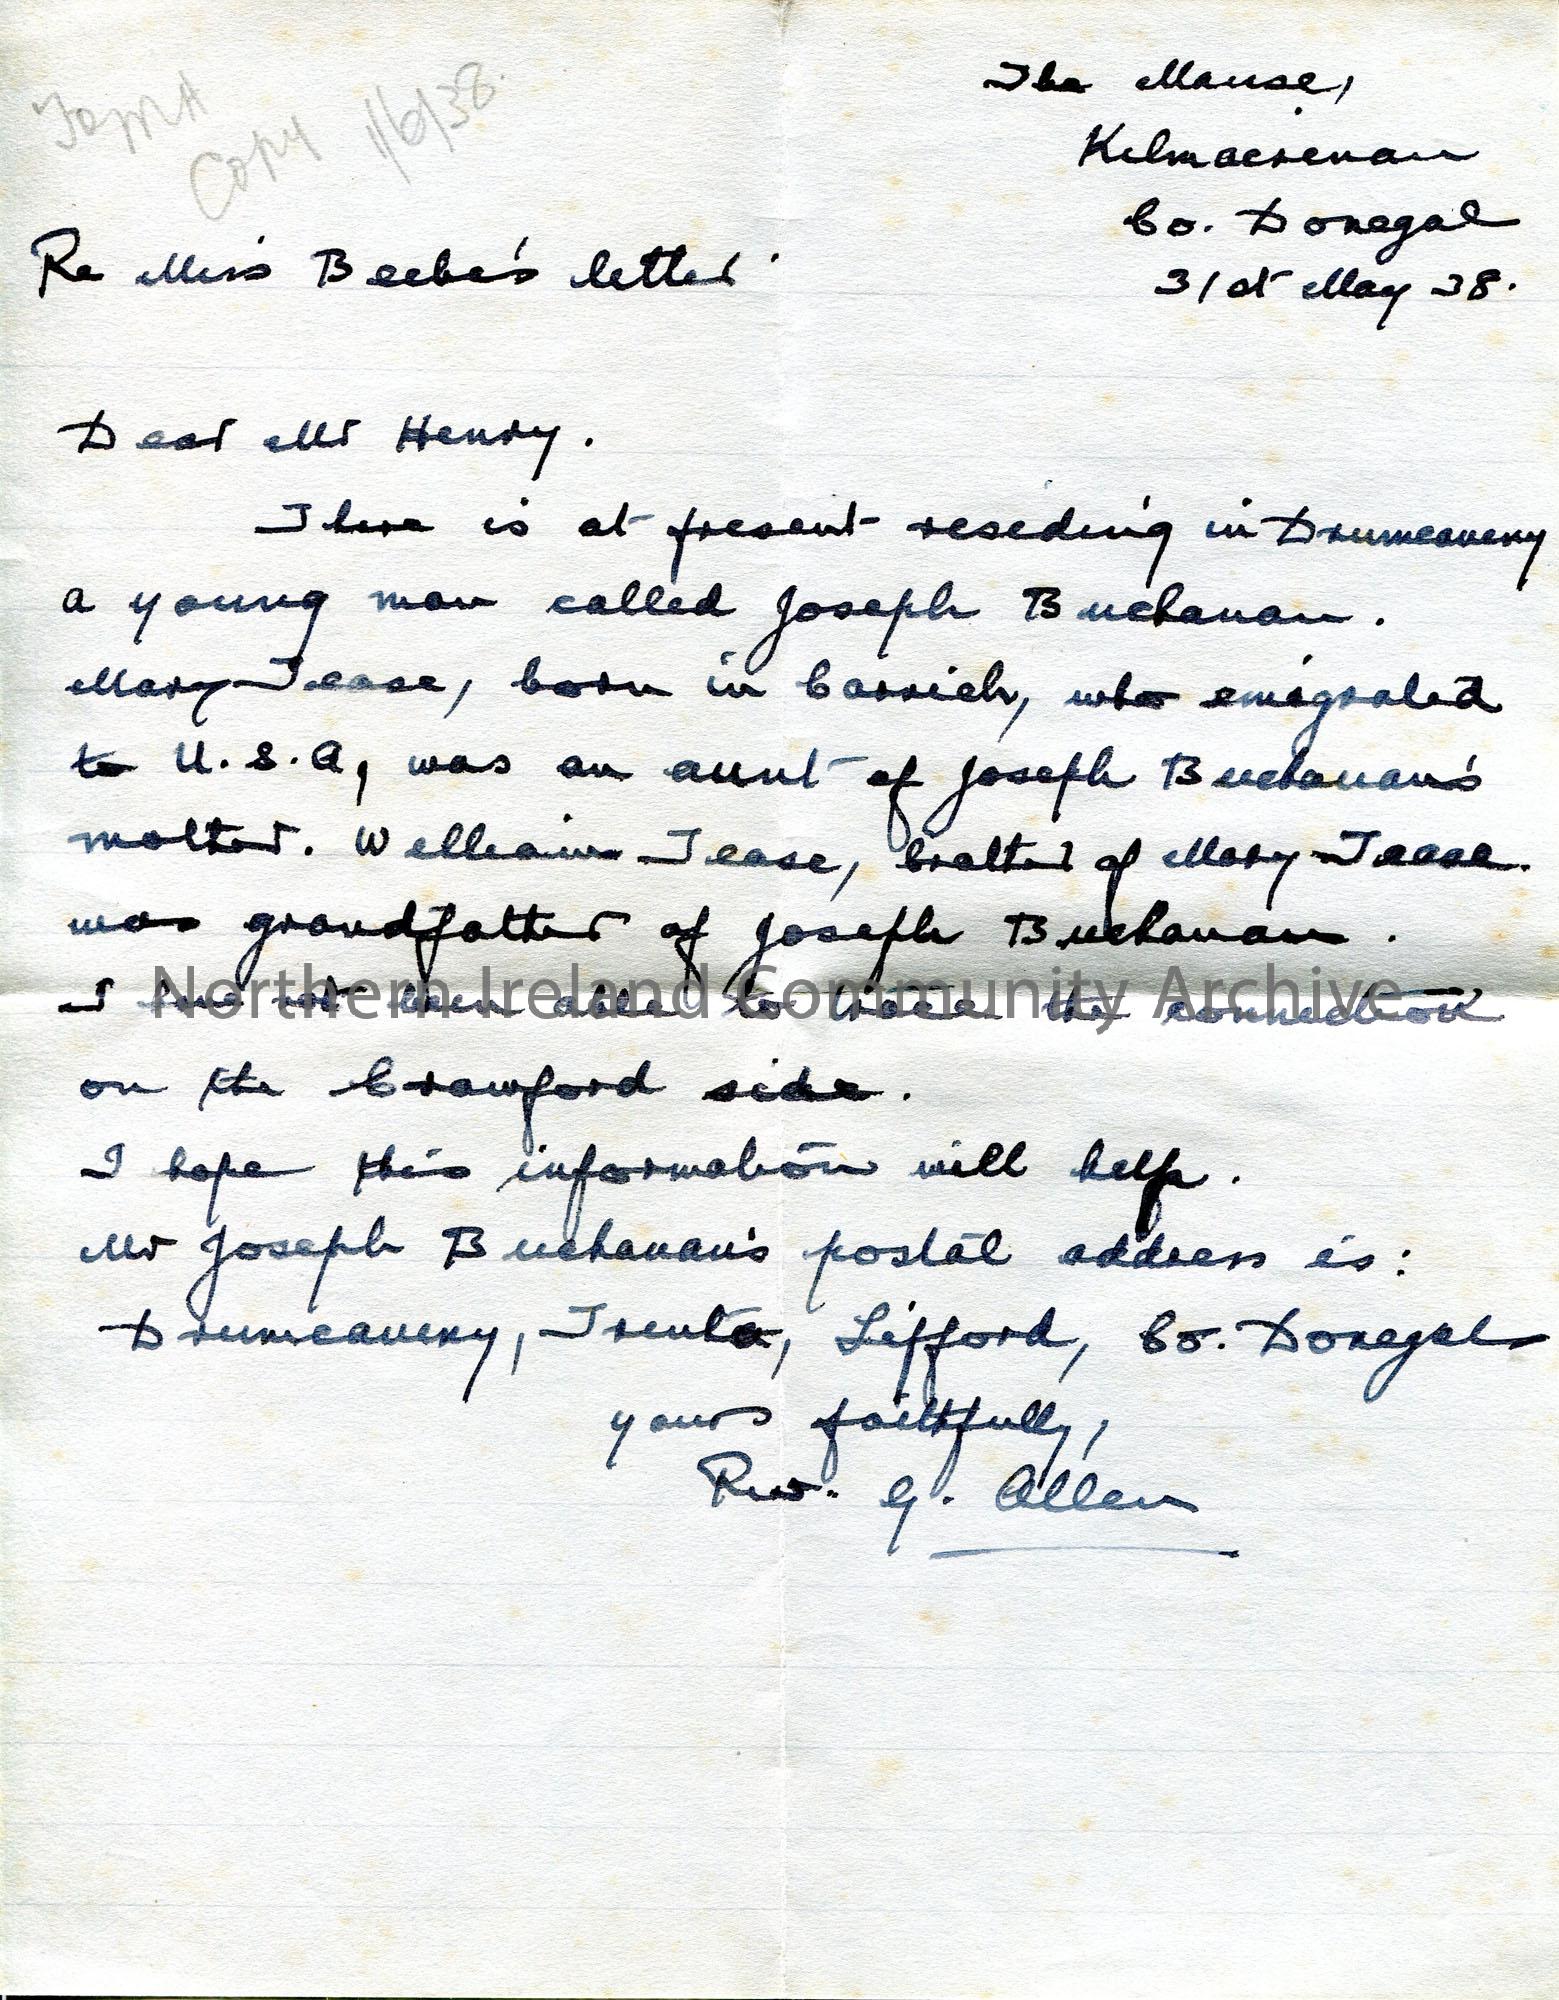 Copy 1/6/38.
The Manse,
Kilmacrenan
Co. Donegal
31st May 38.
Re Miss Beebe's letter
Dear Mr Henry.
There is at present residing in Drumeavery
a young man called Joseph Buchanan.
Mary Tease, born in Carrick, who emigrated
to U.S.A, was an aunt of Joseph Buchanan's
mother. William Tease, brother of Mary Tease.
was grandfather of Joseph Buchanan.
I have not been able to trace the connection
on the Crawford side.
I hope this information will help.
Mr Joseph Buchanan's postal address is:
Drumeavery, Trenta, Lifford, Co. Donegal
yours faithfully,
Rev. G. Allen
Northern Ireland Community Archive